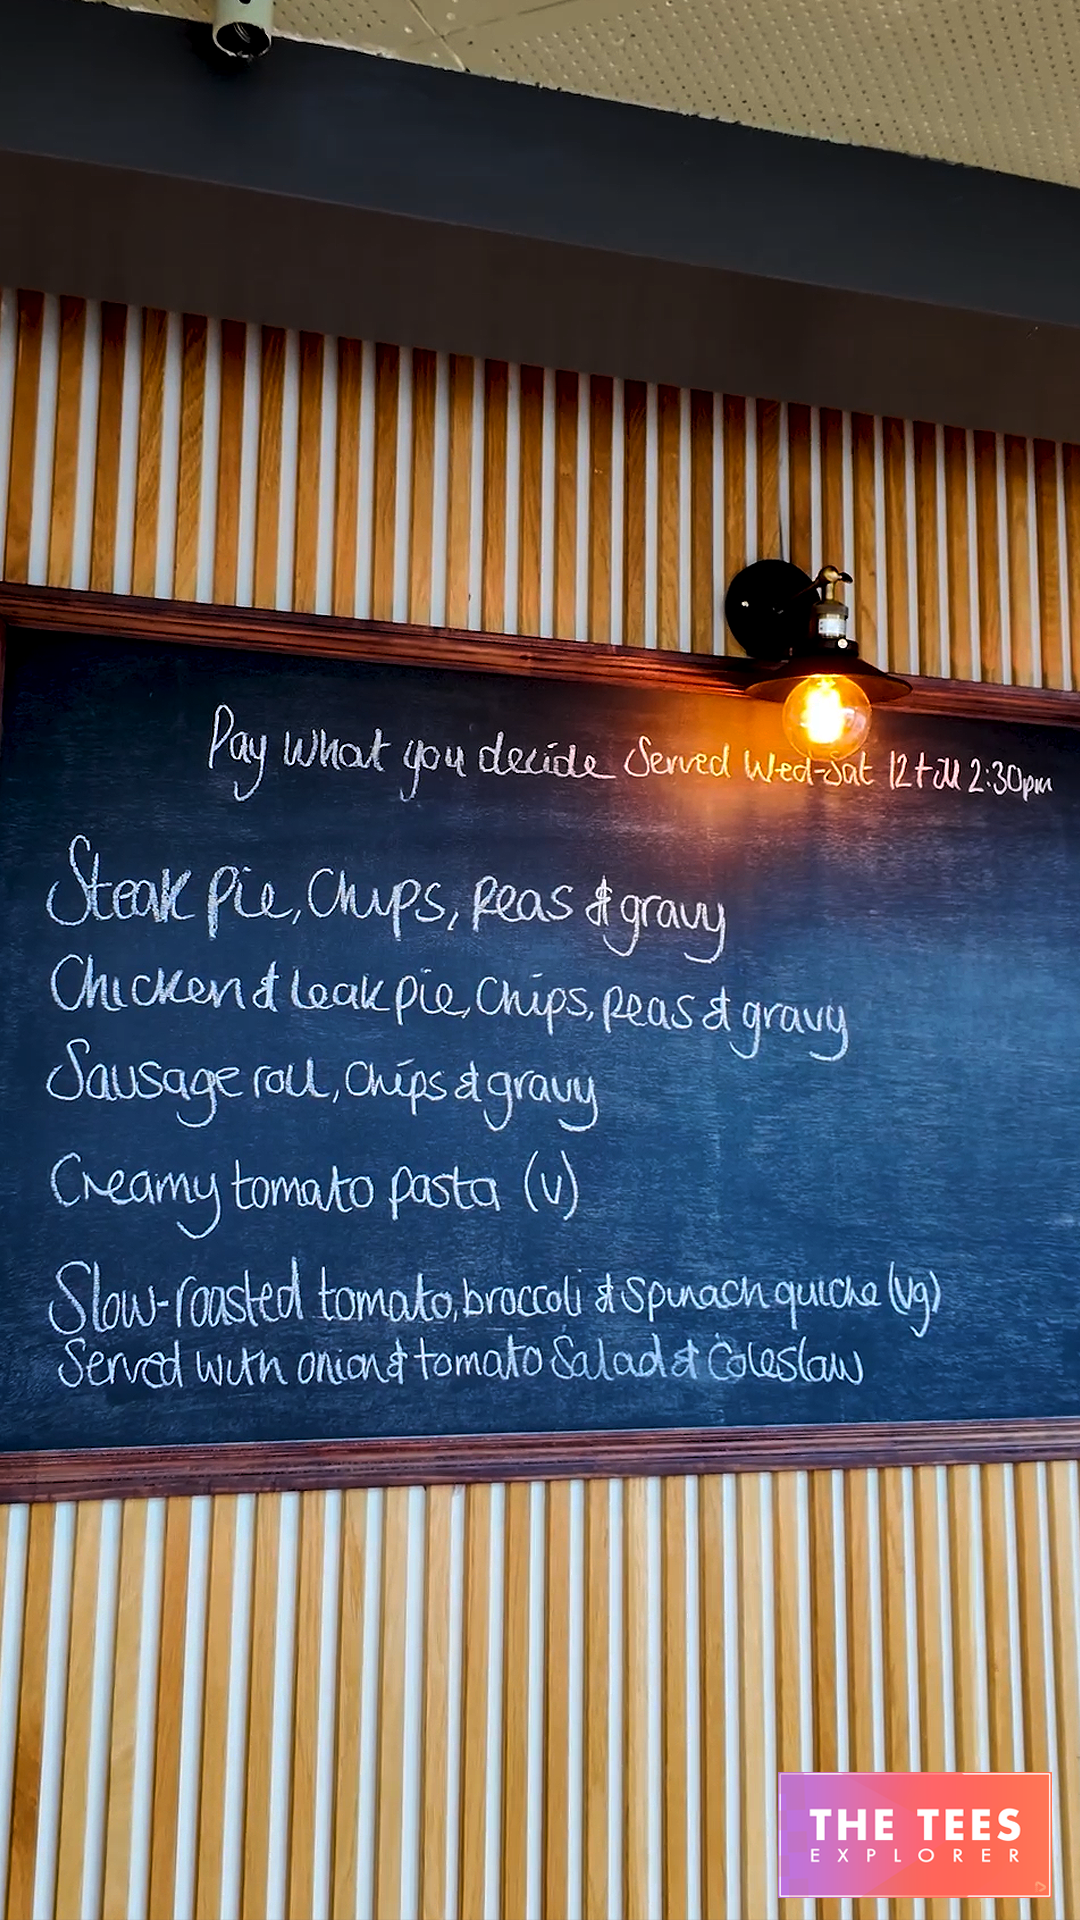 Pay what you decide Served Wed-Sat 12till 2:30pm
Steak pie, Chips, peas & gravy
Chicken & Leak pie, Chips, peas & gravy
Sausage roll, chips & gravy
Creamy tomato pasta (v)
Slow-roasted tomato, broccoli & spinach quiche (vg)
Served with onion & tomato Salad & Coleslaw
THE TEES
EXPLORER